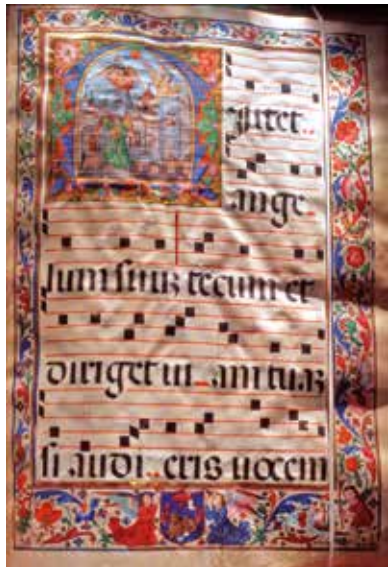 ittet..
ange_
lum suuʒ tecum et
diriget ui_am tuaʒ
si audi..eris uocem